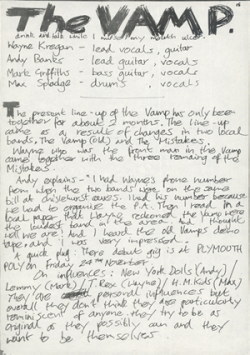 The VAMP.
Wayne Kreegan - lead vocals, guitar
Andy Banks - lead guitar, vocals
Mark Griffiths - bass guitar, vocals
Mac Splodge - drums, vocals
The present line-up of the Vamp has only been
together for about 3 months. The line-up
came as a result of changes in two local
bands. The Vamp (old) and The 'Mistakes'.
Wayne who was the front man in the Vamp
came together with the three remaining of the
Mistakes.
Andy explains - "I had Wayne's phone number
from when the two bands were on the same
bill at chislehurst caves. I had his number because
we had to organise the P.A. Then I read in a
local paper that Wayne reckoned the Vamp were
the loudest band in the area. I thought
and I heard the old Vamps demo
tape, and I was very impressed.
A quick plug: There debut gig is at PLYMOUTH
POLY on Friday 24th November
On influences: New York Dolls (Andy)/
Lemmy (Mark)/ T.Rex (Wayne)/ (Mac)
They are personal influences but
overall they don't think they are particularly
reminiscent of anyone. they try to be as
original as they possibly can and they
want to be themselves.